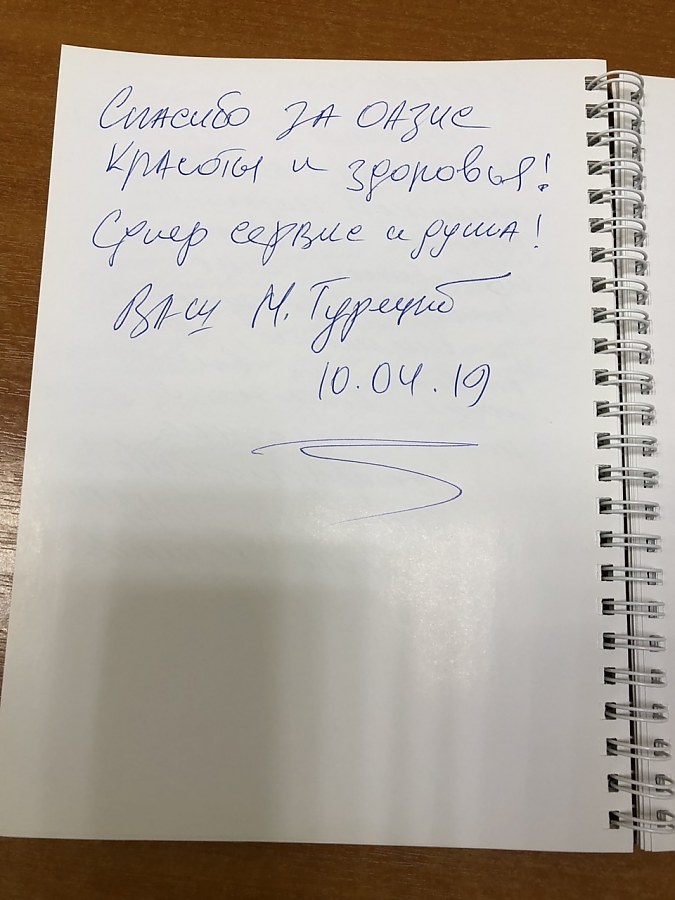 Спасибо за оазис
красоты и здоровья!
Супер сервис и душа!
Ваш М. Турецкий
10.04.19